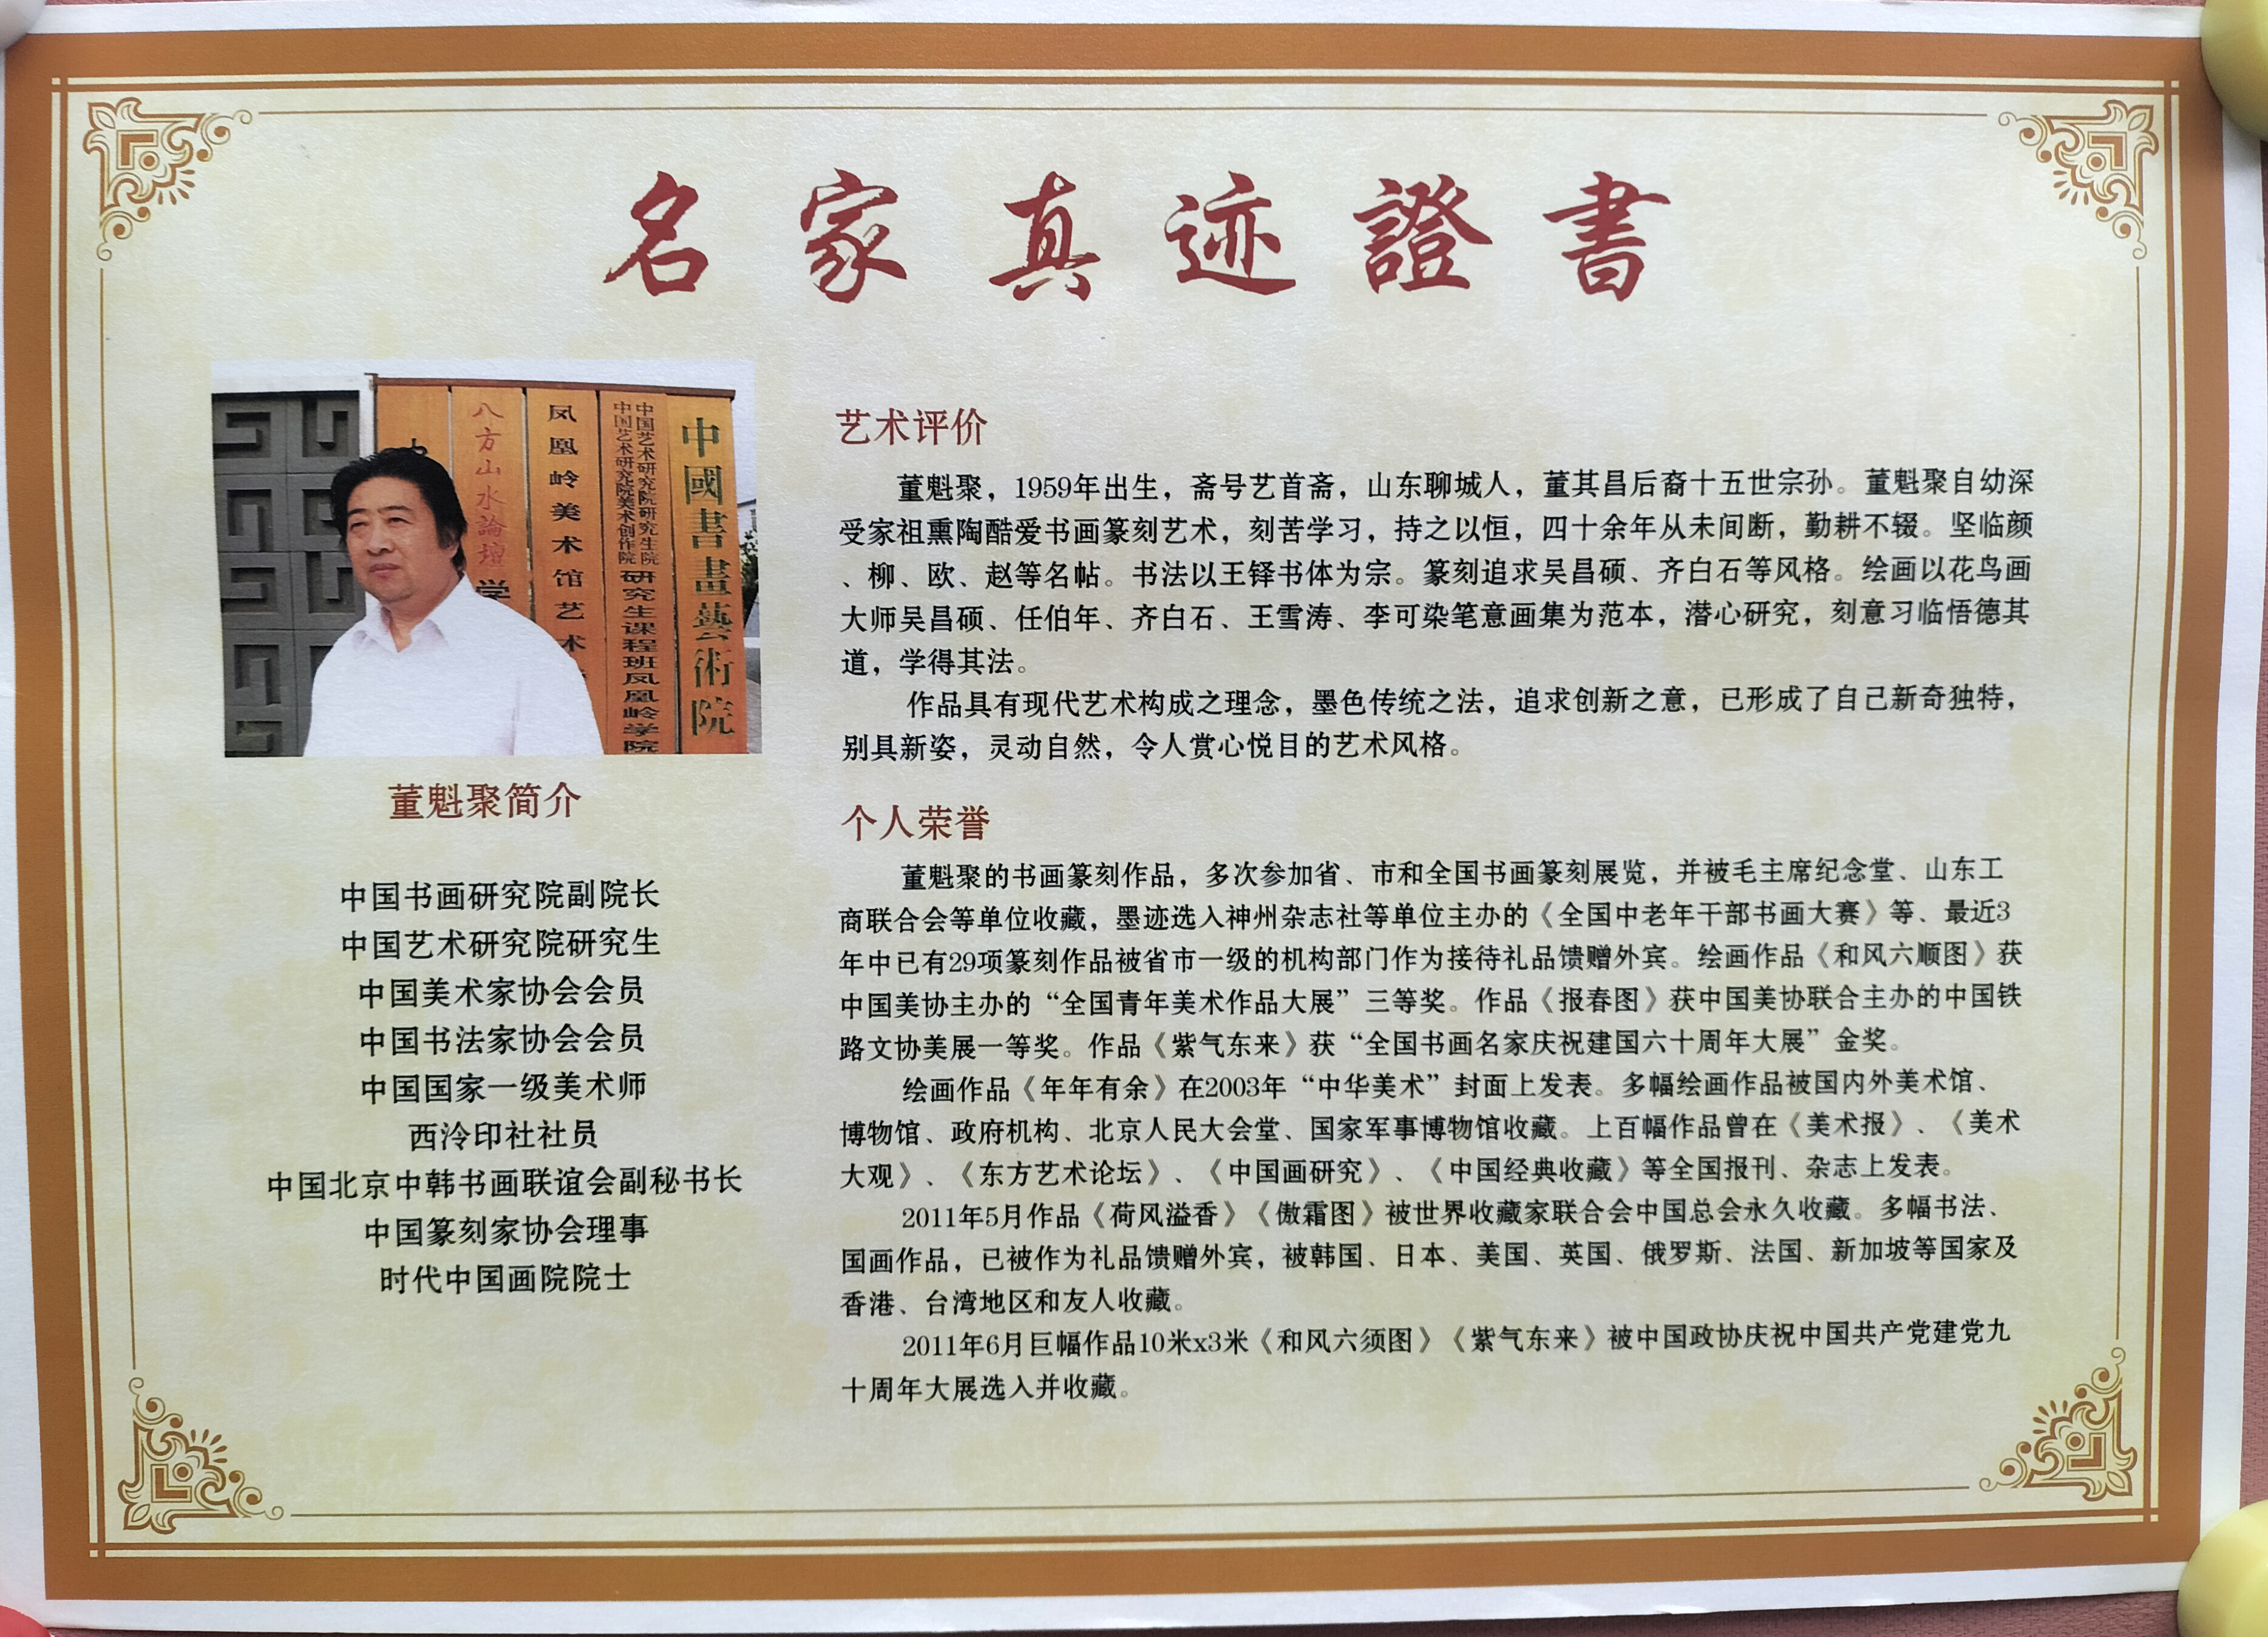 名家真迹證書
八方山水論壇
学
凤凰岭美术馆艺术
中国艺术研究院研究生院
中国艺术研究院美术创作院
研究生课程班凤凰岭学院
中國書畫藝術院
董魁聚简介
中国书画研究院副院长
中国艺术研究院研究生
中国美术家协会会员
中国书法家协会会员
中国国家一级美术师
西泠印社社员
中国北京中韩书画联谊会副秘书长
中国篆刻家协会理事
时代中国画院院士
艺术评价
董魁聚，1959年出生，斋号艺首斋，山东聊城人，董其昌后裔十五世宗孙。董魁聚自幼深
受家祖熏陶酷爱书画篆刻艺术，刻苦学习，持之以恒，四十余年从未间断，勤耕不辍。坚临颜
、柳、欧、赵等名帖。书法以王铎书体为宗。篆刻追求吴昌硕、齐白石等风格。绘画以花鸟画
大师吴昌硕、任伯年、齐白石、王雪涛、李可染笔意画集为范本，潜心研究，刻意习临悟德其
道，学得其法。
作品具有现代艺术构成之理念，墨色传统之法，追求创新之意，已形成了自己新奇独特，
别具新姿，灵动自然，令人赏心悦目的艺术风格。
个人荣誉
董魁聚的书画篆刻作品，多次参加省、市和全国书画篆刻展览，并被毛主席纪念堂、山东工
商联合会等单位收藏，墨迹选入神州杂志社等单位主办的《全国中老年干部书画大赛》等、最近3
年中已有29项篆刻作品被省市一级的机构部门作为接待礼品馈赠外宾。绘画作品《和风六顺图》获
中国美协主办的“全国青年美术作品大展”三等奖。作品《报春图》获中国美协联合主办的中国铁
路文协美展一等奖。作品《紫气东来》获“全国书画名家庆祝建国六十周年大展”金奖。
绘画作品《年年有余》在2003年“中华美术”封面上发表。多幅绘画作品被国内外美术馆、
博物馆、政府机构、北京人民大会堂、国家军事博物馆收藏。上百幅作品曾在《美术报》、《美术
大观》、《东方艺术论坛》、《中国画研究》、《中国经典收藏》等全国报刊、杂志上发表。
2011年5月作品《荷风溢香》《傲霜图》被世界收藏家联合会中国总会永久收藏。多幅书法、
国画作品，已被作为礼品馈赠外宾，被韩国、日本、美国、英国、俄罗斯、法国、新加坡等国家及
香港、台湾地区和友人收藏。
2011年6月巨幅作品10米x3米《和风六须图》《紫气东来》被中国政协庆祝中国共产党建党九
十周年大展选入并收藏。